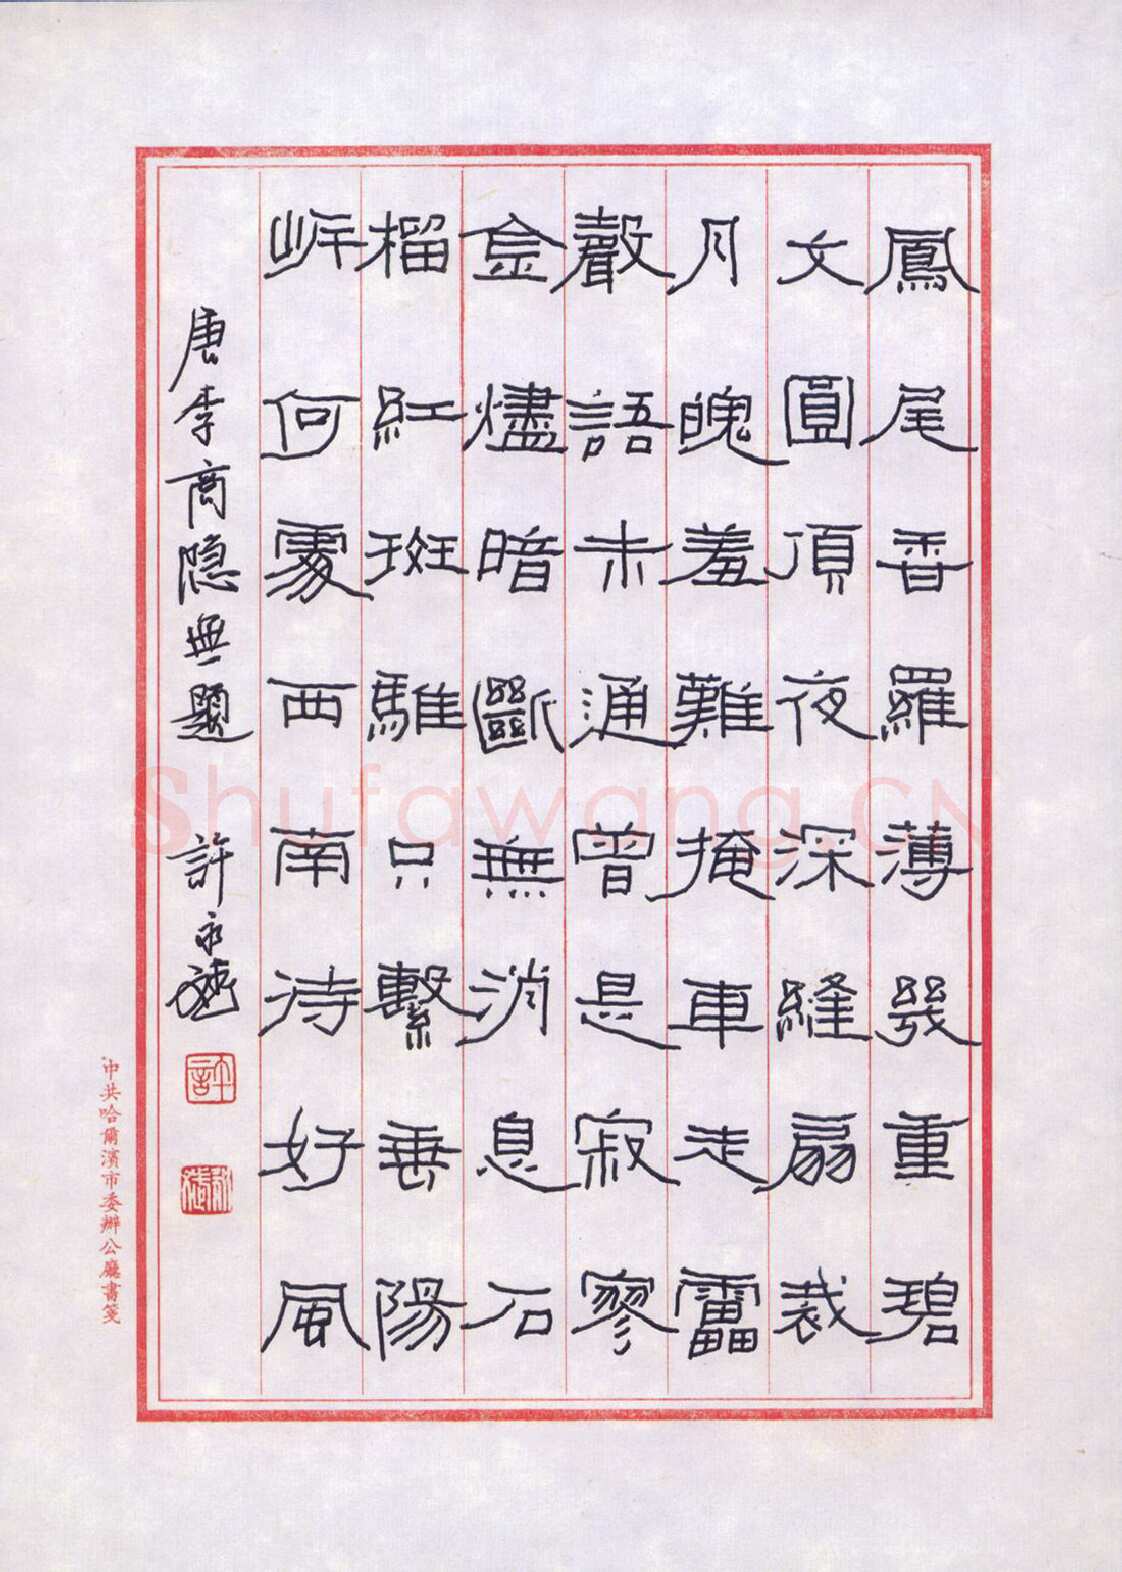 鳳尾香羅薄幾重碧
文圓頂夜深縫扇裁
月魄羞難掩車走靁
聲語未通曾是寂寥
金燼暗斷無消息石
榴紅斑騅只繫垂陽
岸何處西南待好風
唐李商隐無題 許永
許
中共哈爾濱市委辦公廳書箋
Shufawang.CN